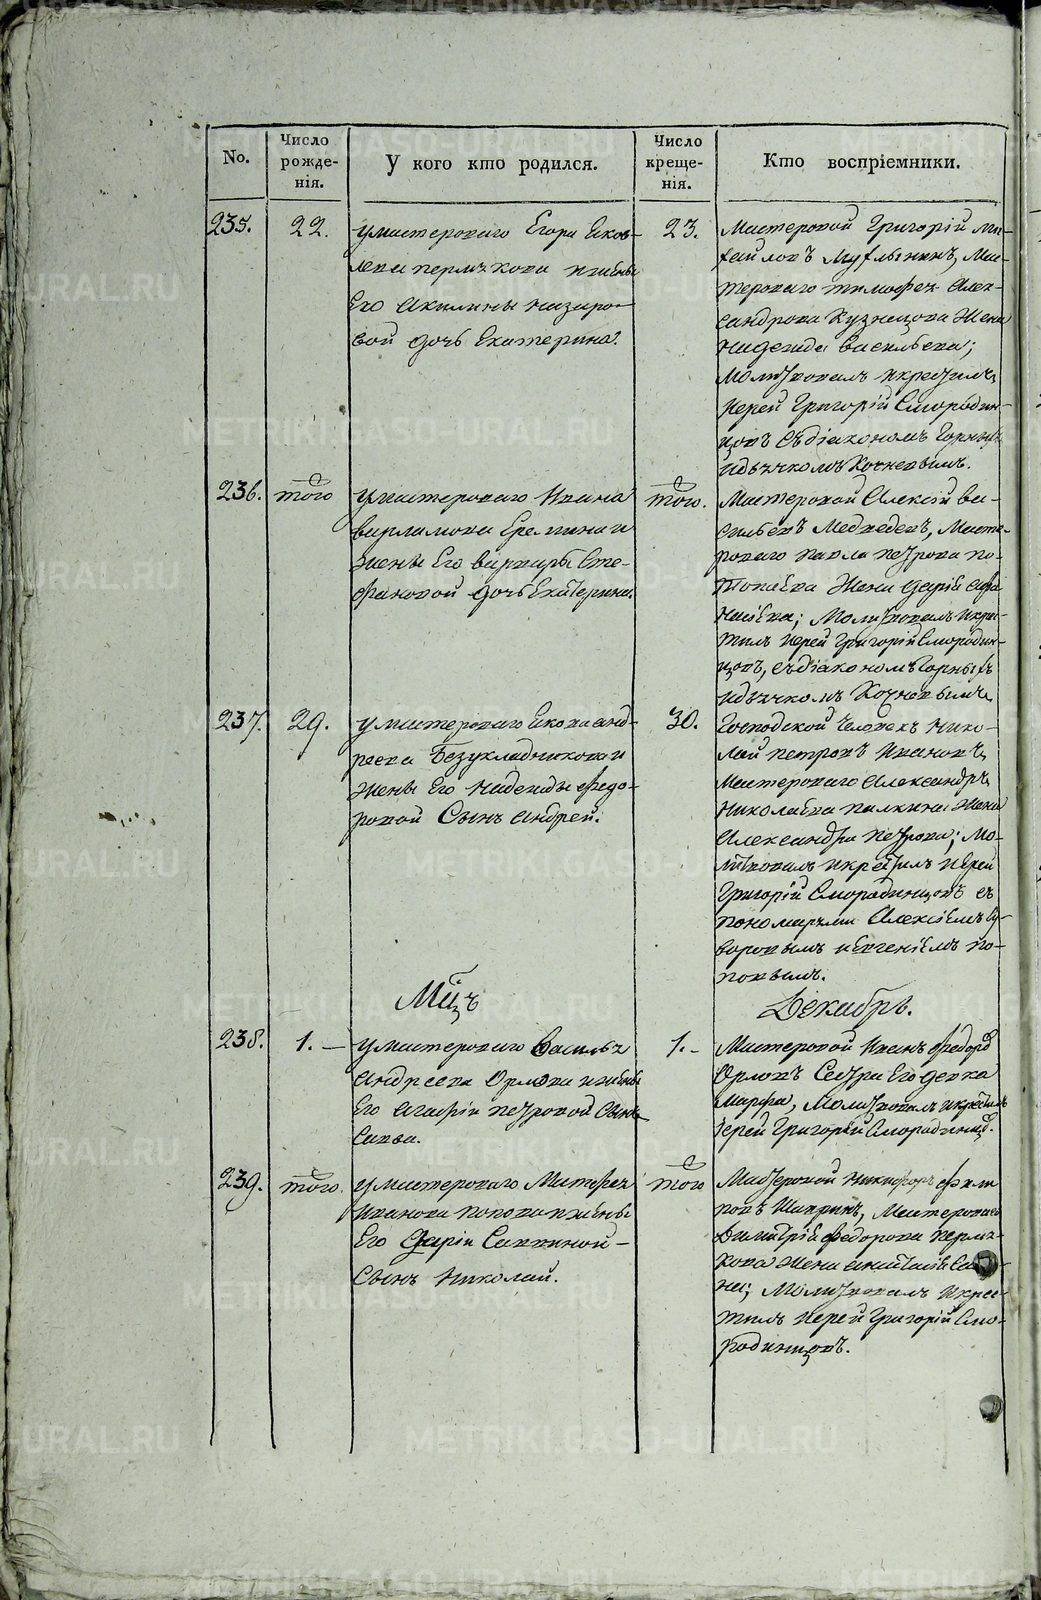 No.
Число рожде-нія.
У кого кто родился.
Число креще-нія.
Кто воспріемники.
235.
22.
умастероваго Егора Яков-
лева пермякова ижены
Его Акилины назаро-
вой дочь Екатерина.
23.
Мастеровой Григорій ми-
хайловъ Мухлынинъ, Мас-
тероваго тимофея Алек-
сандрова Кузнецова Жена
надежда васильева;
Молитвовалъ икрестилъ
Иерей Григорій Смородин-
цовъ съдіакономъ Горныхъ
идьячкомъ Кочневымъ.
236.
того
умастероваго Ивана
варламова Еремина и
жены Его варвары Сте-
фановой дочь Екатерина.
того.
Мастеровой Алексій ва-
сильевъ Медведевъ, Масте-
роваго павла петрова по-
Жена дарія Афа-
насіева; Молитвовалъ икре-
тилъ иерей Григорій Смородин-
цовъ, съдіакономъ Горныхъ
идьячкомъ Кочневымъ
237.
29.
умастероваго Якова анд-
реева Безукладникова и
жены Его надежды федо-
ровой Сынъ Андрей.
30.
Господской человекъ нико-
лай петровъ Ивановъ,
мастероваго Александръ
николаева палкина Жена
Александра петрова; Мо-
литвовалъ икрестилъ иерей
Григорій Смородинцовъ съ
пономарями Алексіемъ Су-
воровымъ иЕвгеніемъ по-
повымъ.
Мцъ
Декабрь.
238.
1. –
умастероваго Василья
Андреева Орлова ижены
Его Агафіи петровой Сынъ
Савва.
1. –
Мастеровой Иванъ федоро
Орловъ Сестра Его девка
Марфа, Молитвовалъ икрестилъ
Иерей Григорій Смородинцо.
239.
того.
умастероваго Матфея
Иванова попова ижены
Его Даріи Саввиной –
Сынъ николай.
того
Мастеровой никифоръ фили
повъ Шапринъ, Мастероваго
Димитрія федорова пермя-
кова жена анастасія Са
на; Молитвовалъ икрес-
тилъ иерей Григорій Смо-
родинцовъ.
METRIKI.GASO-URAL.RU